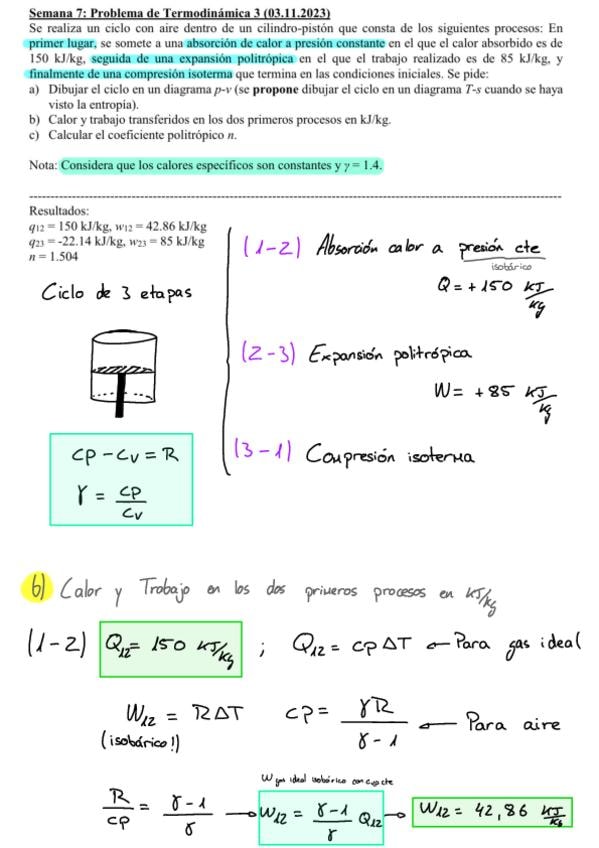 Semana 7: Problema de Termodinámica 3 (03.11.2023)
Se realiza un ciclo con aire dentro de un cilindro-pistón que consta de los siguientes procesos: En
primer lugar, se somete a una absorción de calor a presión constante en el que el calor absorbido es de
150 kJ/kg, seguida de una expansión politrópica en el que el trabajo realizado es de 85 kJ/kg, y
finalmente de una compresión isoterma que termina en las condiciones iniciales. Se pide:
a) Dibujar el ciclo en un diagrama p-v (se propone dibujar el ciclo en un diagrama T-s cuando se haya
visto la entropía).
b) Calor y trabajo transferidos en los dos primeros procesos en kJ/kg.
c) Calcular el coeficiente politrópico n.
Nota: Considera que los calores específicos son constantes y γ = 1.4.
Resultados:
q12 = 150 kJ/kg, w12 = 42.86 kJ/kg
q23 = -22.14 kJ/kg, w23 = 85 kJ/kg
n = 1.504
Ciclo de 3 etapas
(1-2) Absorción calor a presión cte
isobárico
Q = +150 kJ/kg
(2-3) Expansión politrópica
W = +85 kJ/kg
(3-1) Compresión isoterma
CP - CV = R
γ = CP/CV
b) Calor y Trabajo en los dos primeros procesos en kJ/kg
(1-2) Q12 = 150 kJ/kg ; Q12 = CP ΔT ← Para gas ideal
W12 = RΔT CP = γR/γ-1 ← Para aire
(isobárico!)
W gas ideal isobárico con cp cte
R/CP = γ-1/γ → W12 = γ-1/γ Q12 → W12 = 42,86 kJ/kg